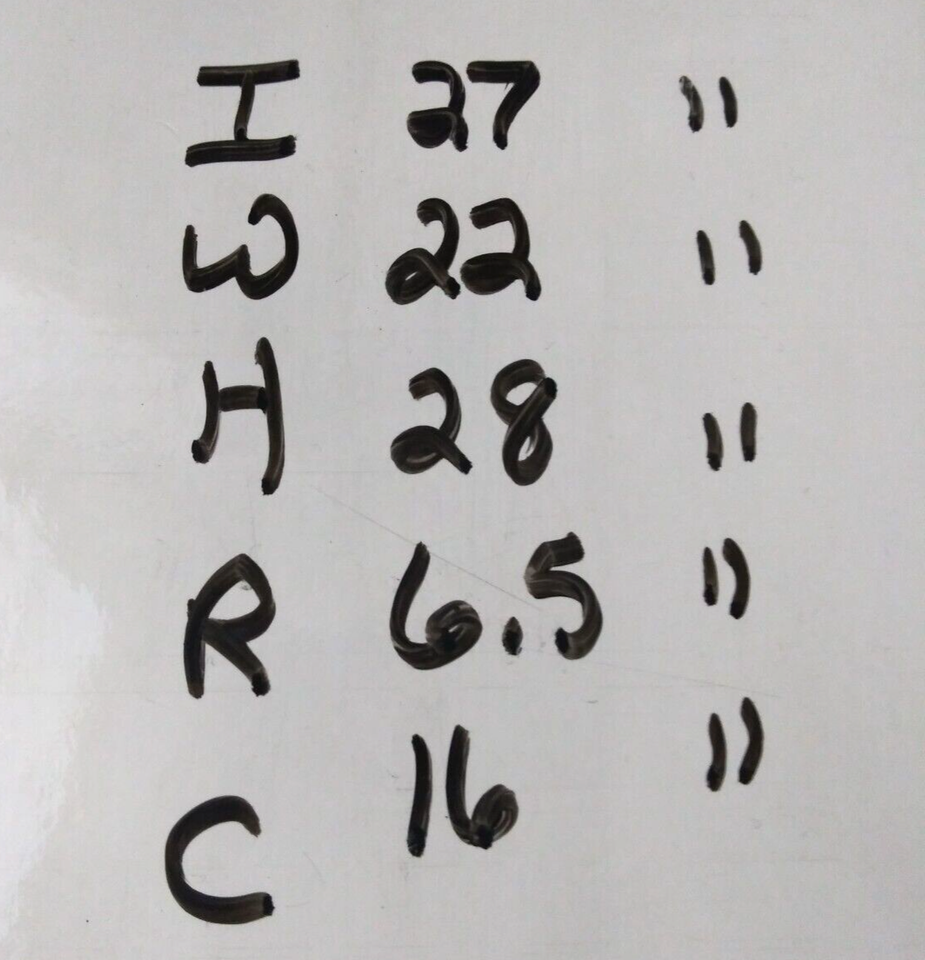 I 27 "
W 22 "
H 28 "
R 6.5 "
C 16 "